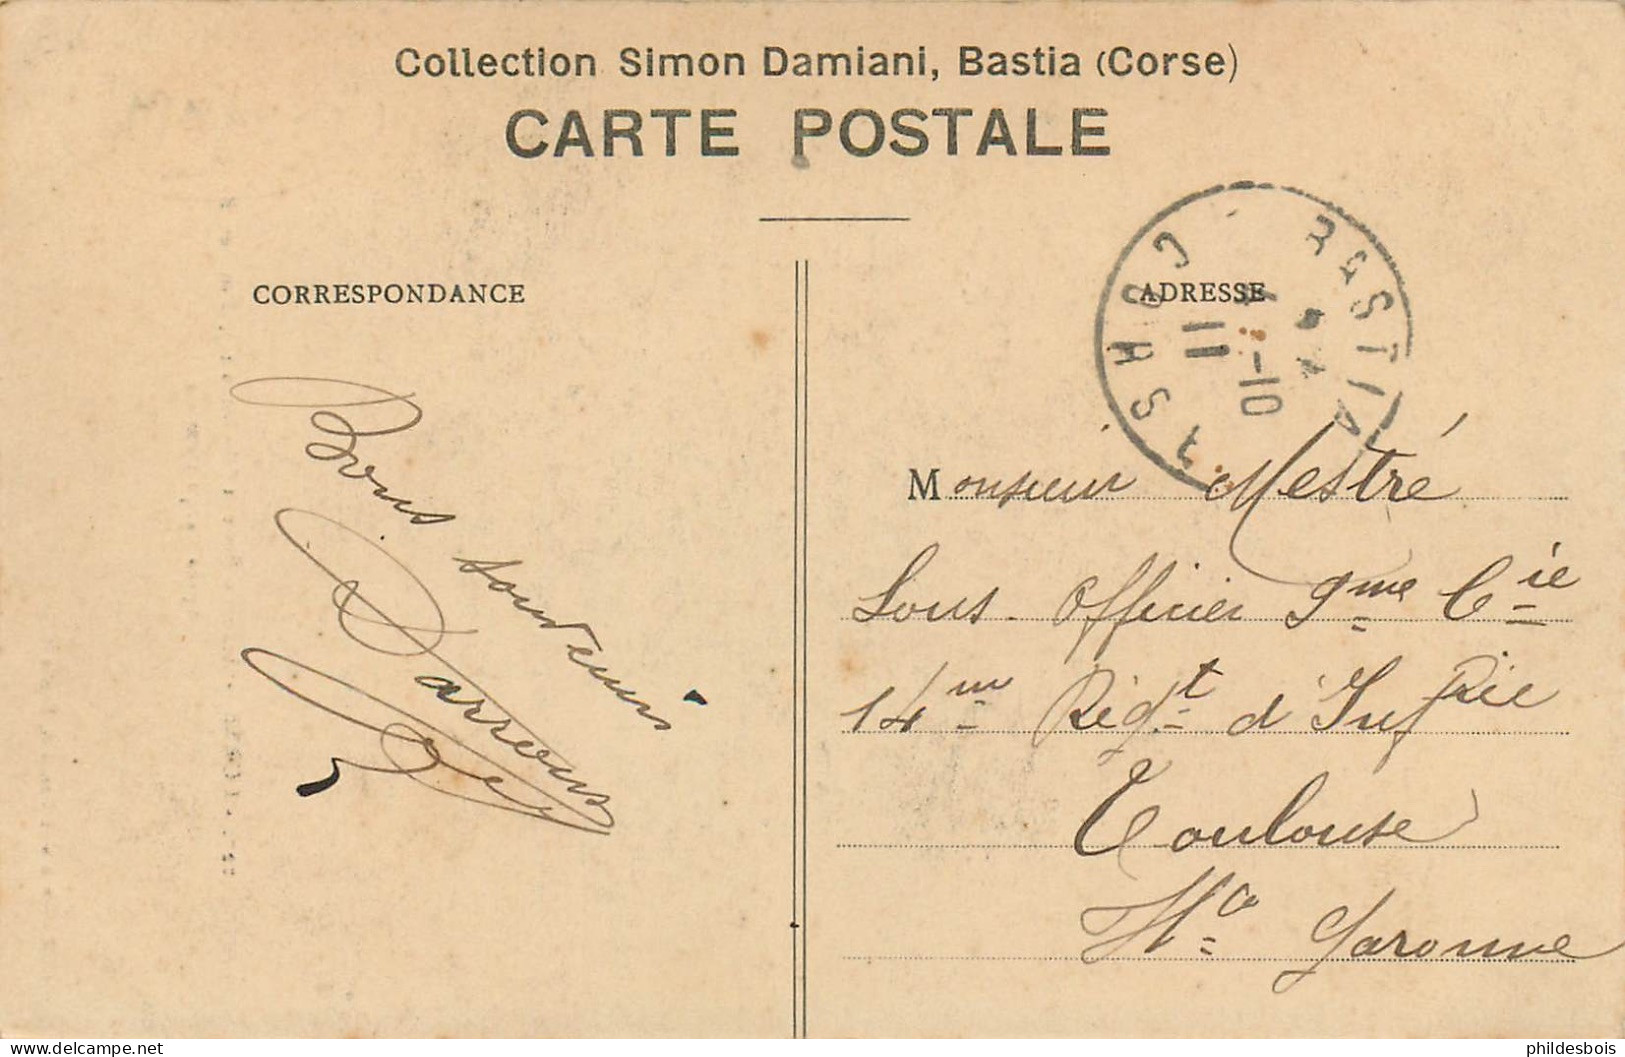 Collection Simon Damiani, Bastia (Corse)
CARTE POSTALE
CORRESPONDANCE
ADRESSE
BASTIA
CORSE
11
-10
Bons souvenirs
Darrous
Monsieur Mestré
Sous-Officier 9me Cie
14me Régt d'Inf rie
Toulouse
Hte Garonne
www.delcampe.net
phildesbois